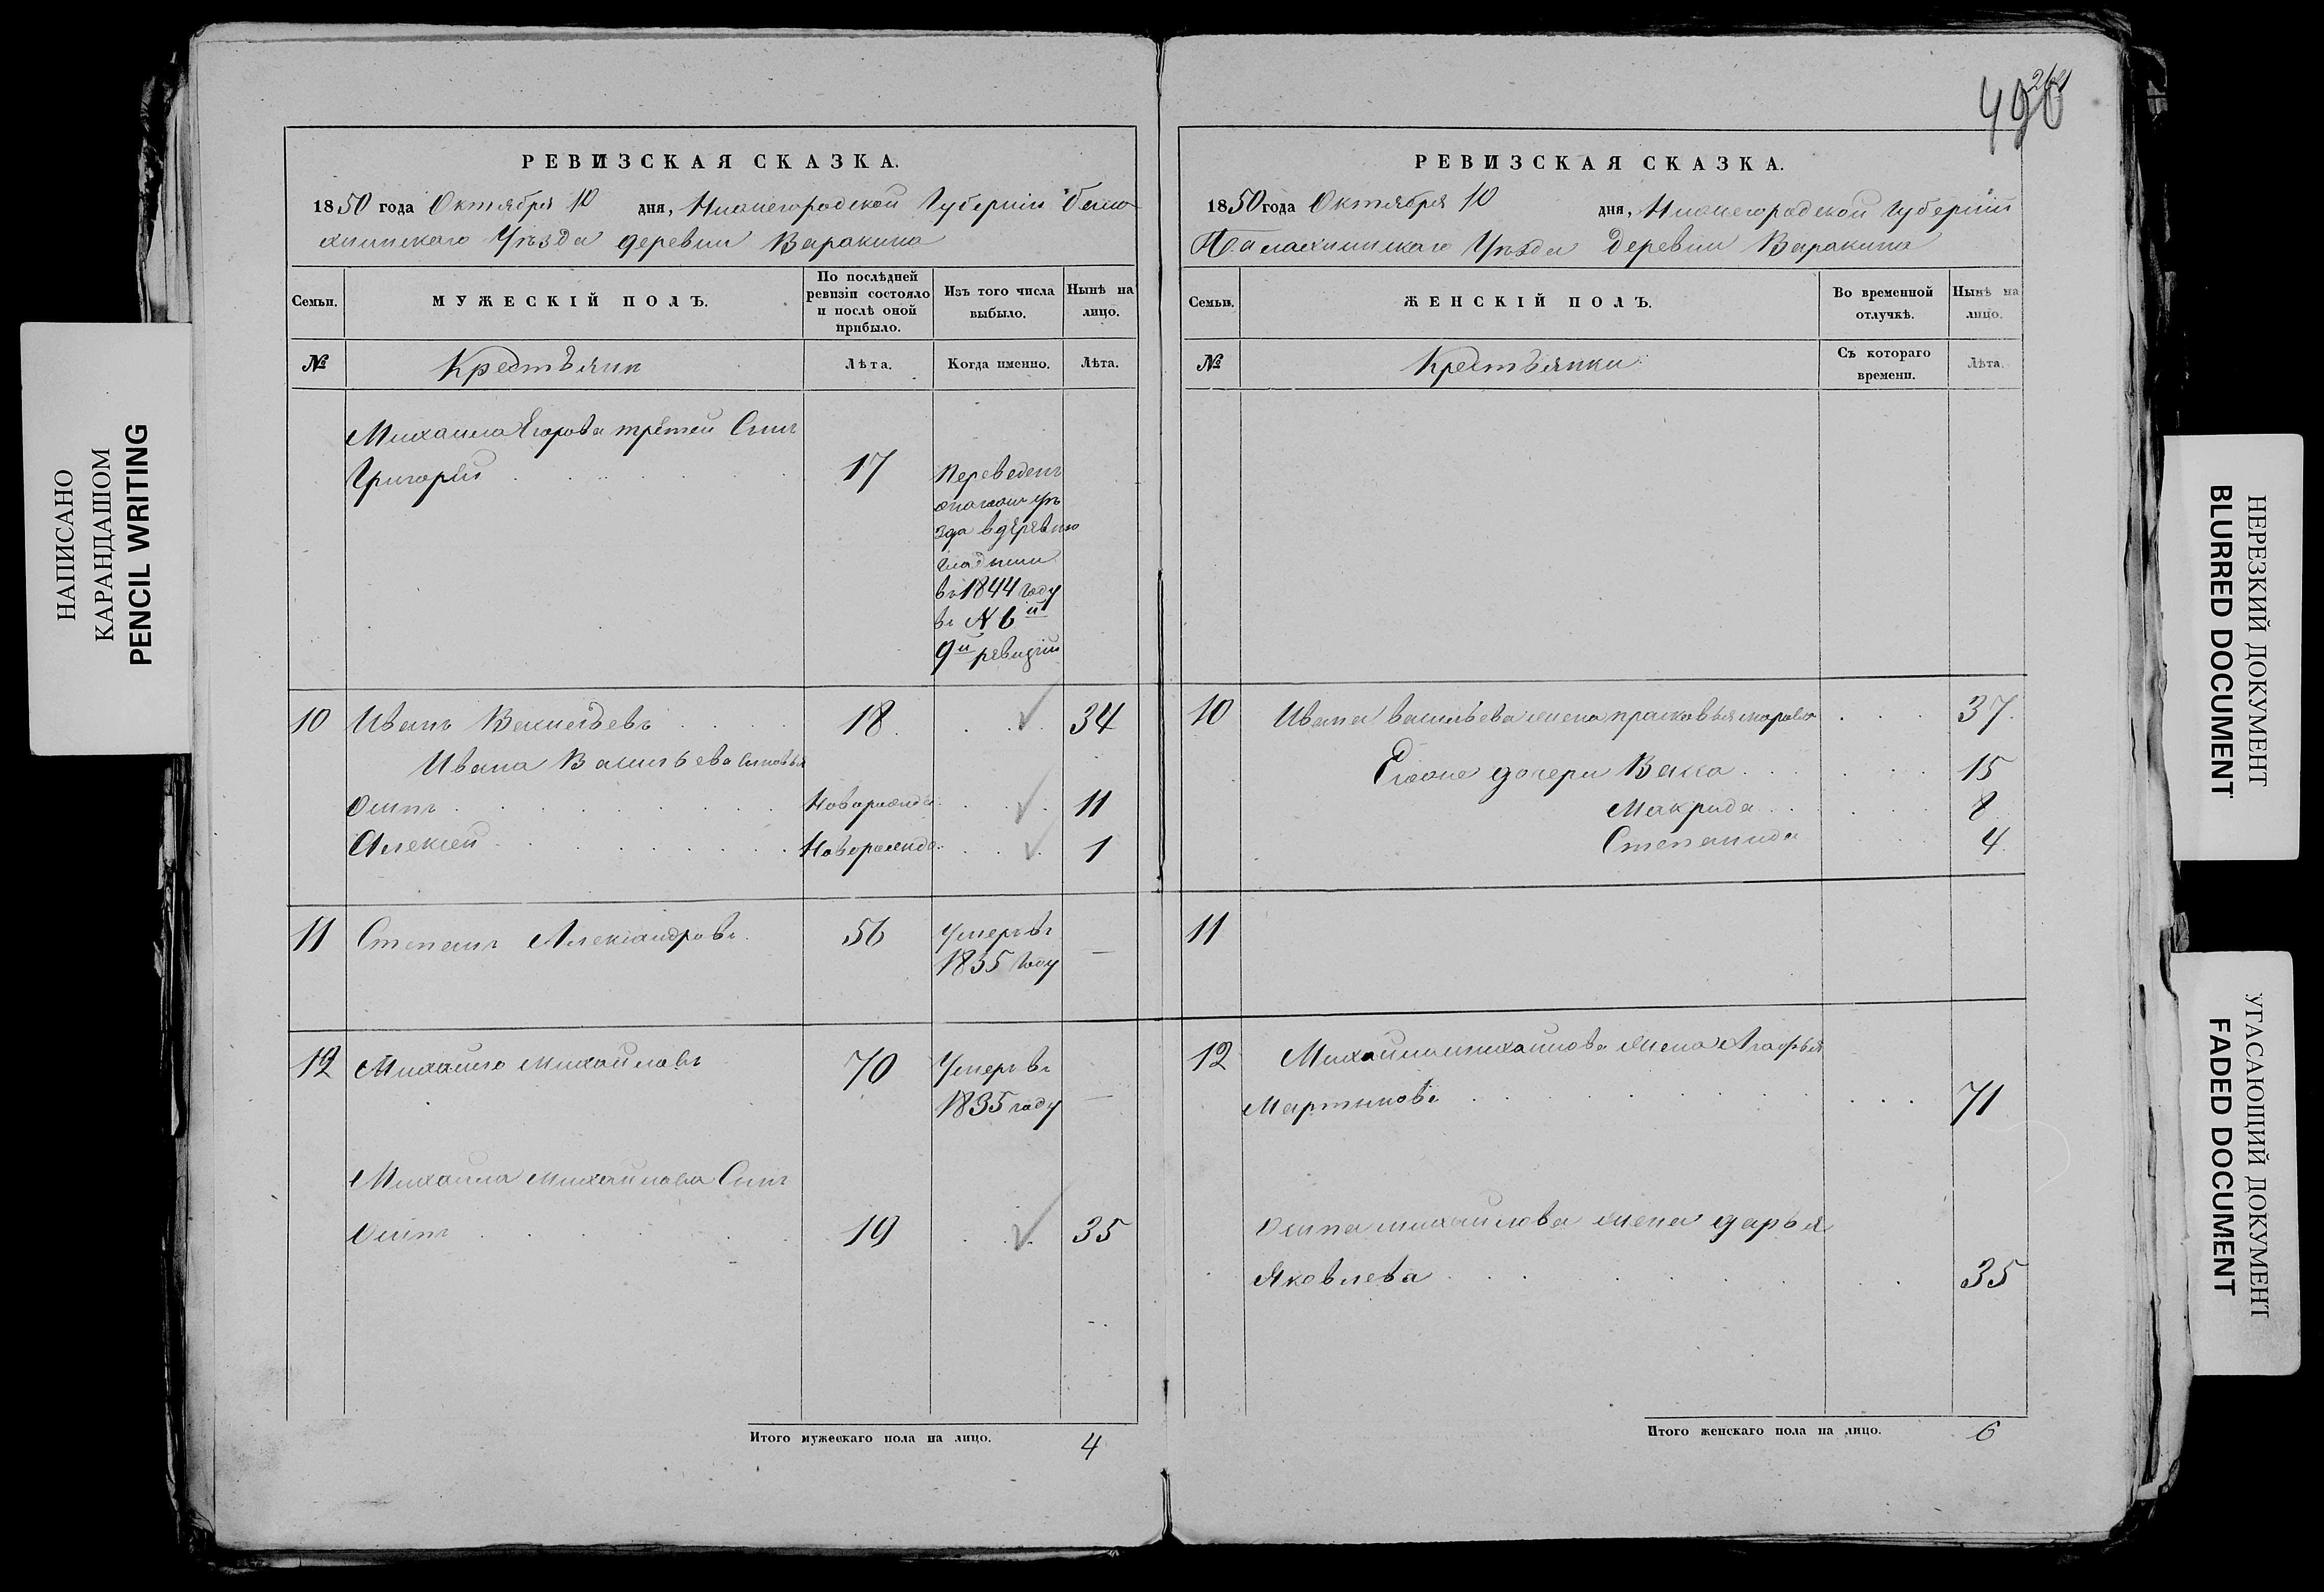 НАПИСАНО
КАРАНДАШОМ
PENCIL WRITING
490
РЕВИЗСКАЯ СКАЗКА.
1850 года Октября 10 дня, Нижегородской Губернии Бала
хнинскаго Уѣзда деревни Варакина
Семьи.
МУЖЕСКІЙ ПОЛЪ.
По послѣдней ревизіи состояло и послѣ оной прибыло.
Изъ того числа выбыло.
Нынѣ на лицо.
№
Крестьяни
Лѣта.
Когда именно.
Лѣта.
Михаила Егорова третей Сынъ
Григорий 17 Переведенъ
уѣ
зда в деревню
въ 1844 году
въ № 6й
9й ревизіи
10 Иванъ Васильевъ 18 34
Ивана Васильева Сыновья
Осипъ Новорожде. 11
Алексей Новорожде. 1
11 Степанъ Александровъ 56 Умеръ въ
1835 году —
12 Михайло Михайловъ 70 Умеръ въ
1835 году —
Михайла Михайлова Сынъ
Осипъ 19 35
Итого мужескаго пола на лицо. 4
РЕВИЗСКАЯ СКАЗКА.
1850 года Октября 10 дня, Нижегородской Губерніи
Балахнинскаго Уѣзда Деревни Варакина
Семьи.
ЖЕНСКІЙ ПОЛЪ.
Во временной отлучкѣ.
Нынѣ на лицо.
№
Крестьянки
Съ котораго времени.
Лѣта.
10 Ивана Васильева жена прасковья 37.
Егоже дочери Васса 15
Макрида 8
Степанида 4.
11
12 Михайла михайлова жена Агафья
Мартинова 71
Осипа михайлова жена дарья
Яковлева 35
Итого женскаго пола на лицо. 6
НЕРЕЗКИЙ ДОКУМЕНТ
BLURRED DOCUMENT
УГАСАЮЩИЙ ДОКУМЕНТ
FADED DOCUMENT